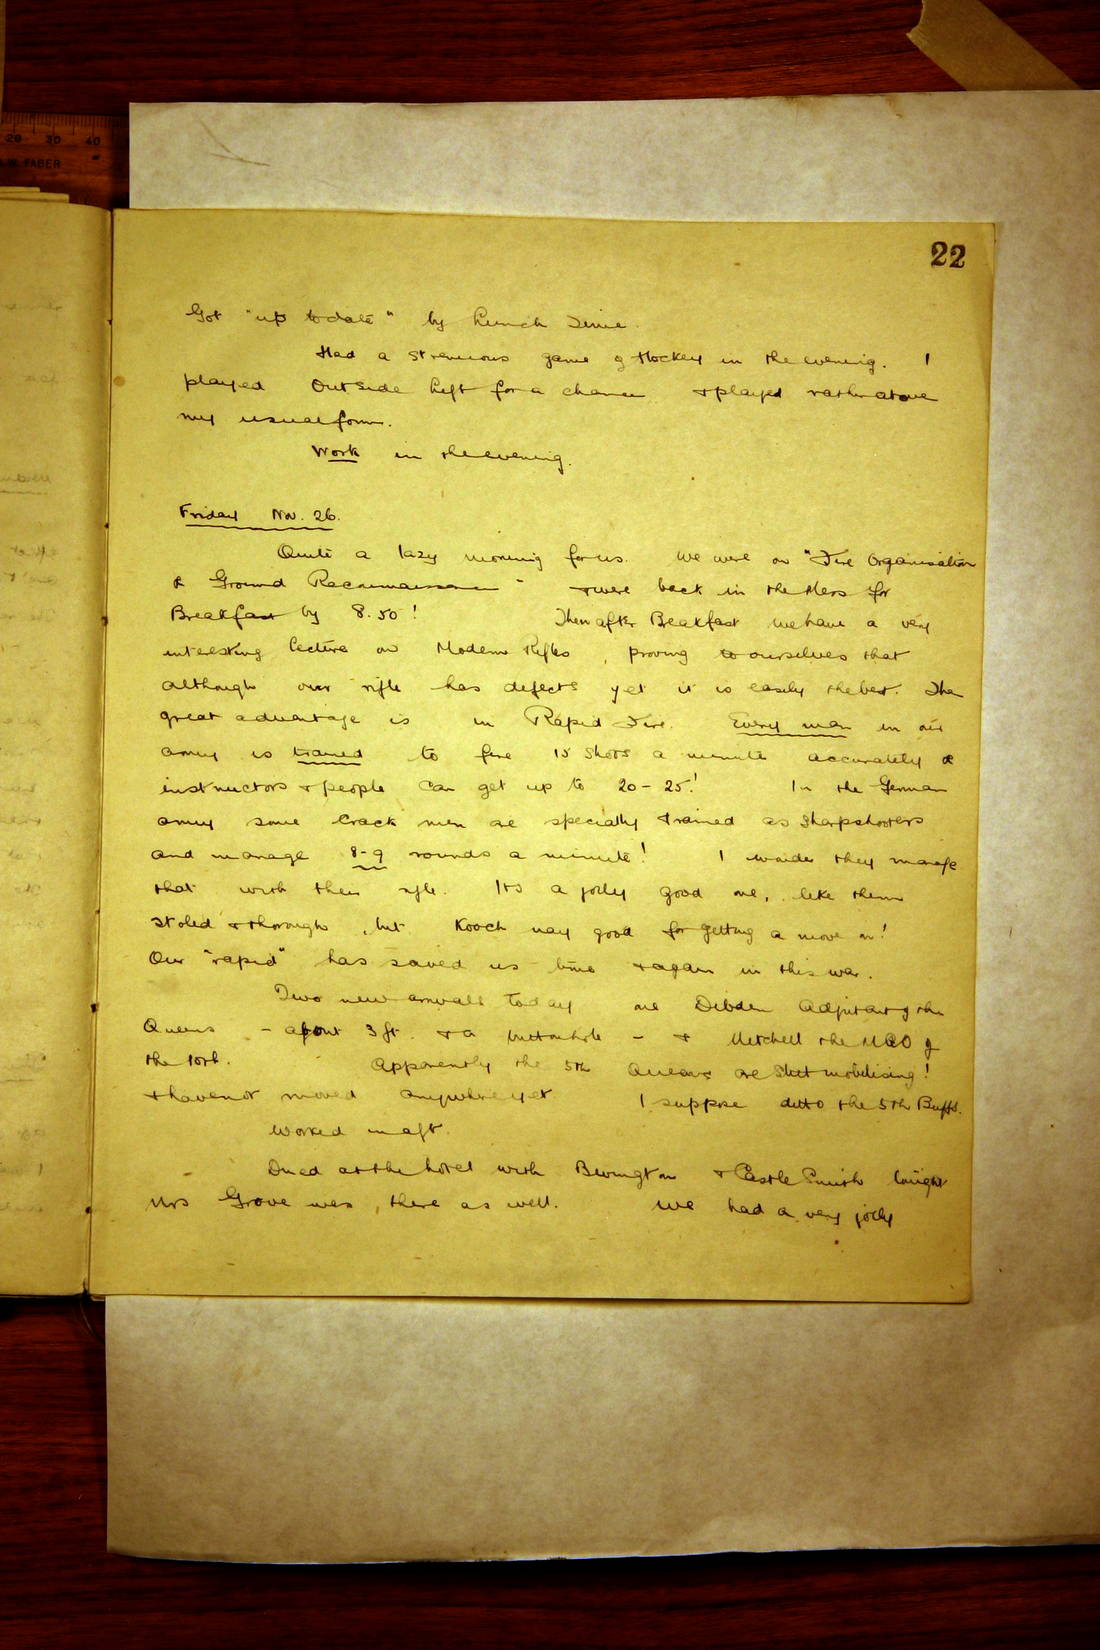 20 30 40
FABER
22
Got "up to date" by Lunch Time.
Had a strenuous game of Hockey in the evening. I
played Outside Left for a change & played rather above
my usual form.
Work in the evening.
Friday Nov. 26.
Quite a lazy morning for us. We were on "Fire Organisation
& Ground Reconnaissance" & were back in the Mess for
Breakfast by 8.50! Then after Breakfast we have a very
interesting lecture on Modern Rifles, proving to ourselves that
although our rifle has defects yet it is easily the best. The
great advantage is in Rapid Fire. Every man in our
army is trained to fire 15 shots a minute accurately &
instructors & people can get up to 20-25! In the German
army some crack men are specially trained as sharpshooters
and manage 8-9 rounds a minute! I wonder they manage
that with their rifle. Its a jolly good one, like them
stolid & thorough, but good for getting a move on!
Our "rapid" has saved us time & again in this war.
Two new arrivals today one Dibden Adjutant of the
Queens - about 3 ft. & a buttonhole - & Mitchell the MGO of
the 10th. Apparently the 5th Queens are still mobilising!
& havenot moved anywhere yet I suppose ditto the 5th Buffs.
Worked in aft.
Dined at the hotel with & Castle Smith tonight
Mrs Grove was, there as well. We had a very jolly